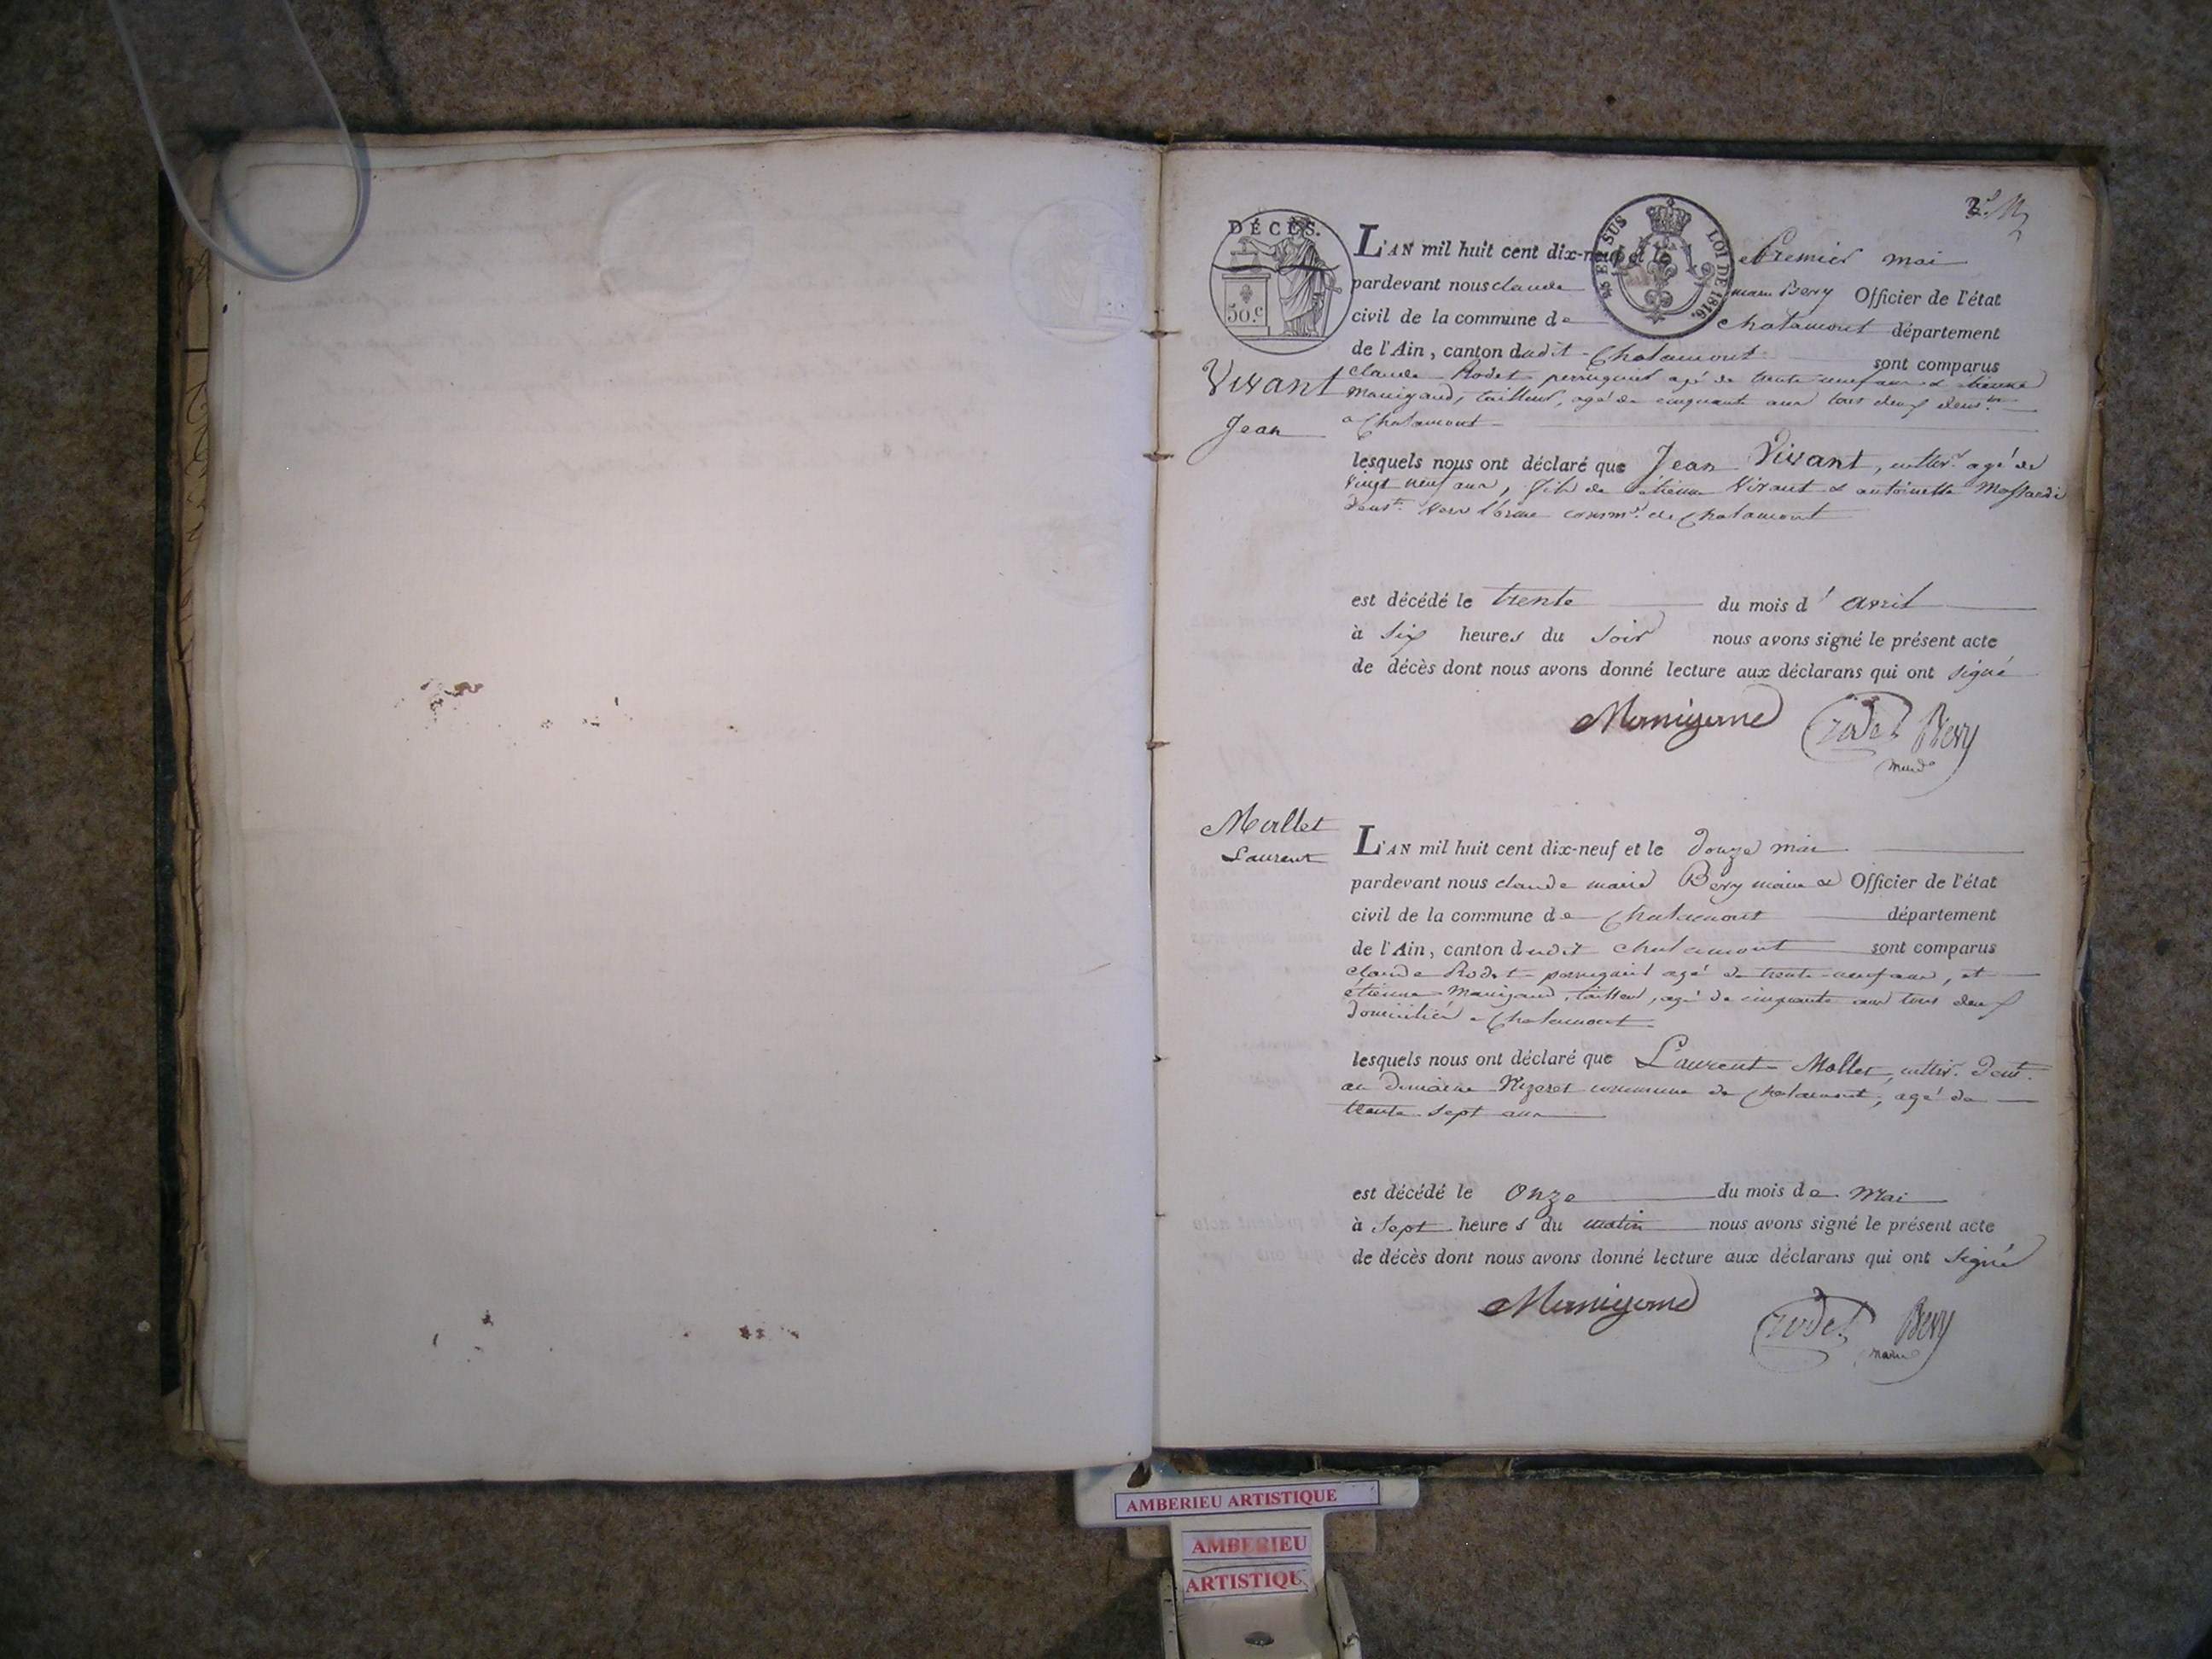 DÉCÈS.
30.c
EN SUS
LOI DE 1816.
L'AN mil huit cent dix-neuf et le Premier mai
pardevant nous claude marie Bery Officier de l'état
civil de la commune de chatamont département
de l'Ain, canton dudit Chatamont sont comparus
Vivant
Jean
claude Rodet perruquier agé de trente neuf ans & étienne
Manigand, tailleur, agé de cinquante ans tous deux
a Chatamont
lesquels nous ont déclaré que Jean Vivant, cultivr. agé de
vingt neuf ans, fils de étienne Vivant & antoinette
comm.e de Chatamont
est décédé le trente du mois d'avril
à six heures du soir nous avons signé le présent acte
de décès dont nous avons donné lecture aux déclarans qui ont signé
Manigand rodet Bery
Mallet
Laurent
L'AN mil huit cent dix-neuf et le douze mai
pardevant nous claude marie Bery maire & Officier de l'état
civil de la commune de Chatamont département
de l'Ain, canton dudit chatamont sont comparus
claude Rodet perruquier agé de trente-neuf ans, et
étienne Manigand, tailleur, agé de cinquante ans tous deux
domiciliés a Chatamont
lesquels nous ont déclaré que Laurent Mollet, cultivr. demt.
au domaine commune de Chatamont, agé de
trente sept ans
est décédé le onze du mois de Mai
à sept heures du matin nous avons signé le présent acte
de décès dont nous avons donné lecture aux déclarans qui ont signé
Manigand rodet Bery
maire
AMBERIEU ARTISTIQUE
AMBERIEU
ARTISTIQU